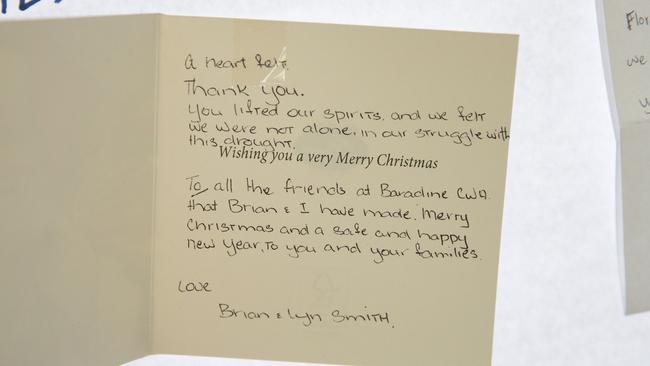 A heart felt.
Thank you.
You lifted our spirits, and we felt
we were not alone, in our struggle with
this drought.
Wishing you a very Merry Christmas
To all the friends at Baradine CWA.
that Brian & I have made. Merry
Christmas and a safe and happy
new Year, To you and your families.
Love
Brian & Lyn Smith.
we